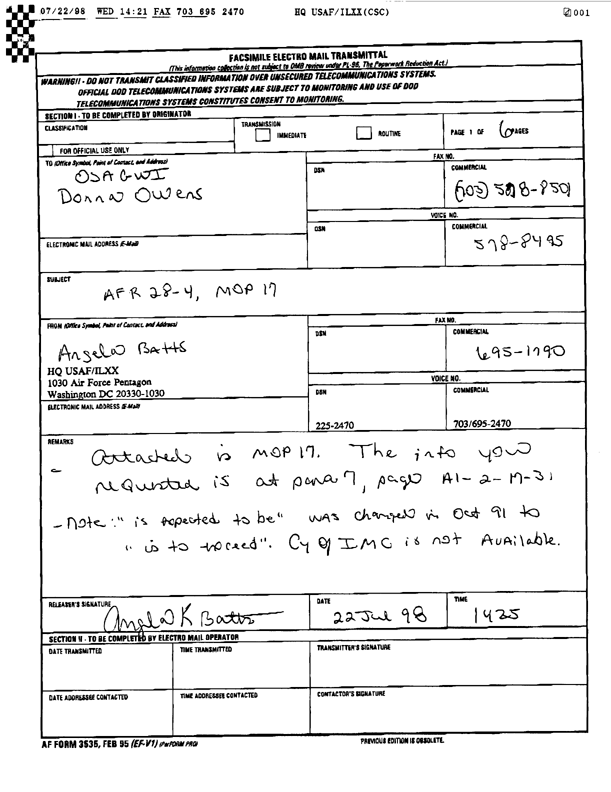 07/22/98 WED 14:21 FAX 703 695 2470 HQ USAF/ILXX(CSC) 001
FACSIMILE ELECTRO MAIL TRANSMITTAL
(This information collection is not subject to OMB review under PL-96, The Paperwork Reduction Act.)
WARNING!! - DO NOT TRANSMIT CLASSIFIED INFORMATION OVER UNSECURED TELECOMMUNICATIONS SYSTEMS.
OFFICIAL DOD TELECOMMUNICATIONS SYSTEMS ARE SUBJECT TO MONITORING AND USE OF DOD
TELECOMMUNICATIONS SYSTEMS CONSTITUTES CONSENT TO MONITORING.
SECTION I - TO BE COMPLETED BY ORIGINATOR
CLASSIFICATION
TRANSMISSION
IMMEDIATE
ROUTINE
PAGE 1 OF 6 PAGES
FOR OFFICIAL USE ONLY
TO (Office Symbol, Point of Contact, and Address)
OSAGWI
Donna Owens
FAX NO.
DSN
COMMERCIAL
(703) 578-8501
VOICE NO.
DSN
COMMERCIAL
578-8495
ELECTRONIC MAIL ADDRESS (E-Mail)
SUBJECT
AFR 28-4, MOP 17
FROM (Office Symbol, Point of Contact, and Address)
Angela Batts
HQ USAF/ILXX
1030 Air Force Pentagon
Washington DC 20330-1030
FAX NO.
DSN
COMMERCIAL
695-1790
VOICE NO.
DSN
COMMERCIAL
225-2470
703/695-2470
ELECTRONIC MAIL ADDRESS (E-Mail)
REMARKS
- Attached is MOP 17. The info you
requested is at para 7, page A1-2-17-31
- Note: "is expected to be" was changed in Oct 91 to
"is to proceed". Cy of IMC is not Available.
RELEASER'S SIGNATURE
Angela K Batts
DATE
22 Jul 98
TIME
1425
SECTION II - TO BE COMPLETED BY ELECTRO MAIL OPERATOR
DATE TRANSMITTED
TIME TRANSMITTED
TRANSMITTER'S SIGNATURE
DATE ADDRESSEE CONTACTED
TIME ADDRESSEE CONTACTED
CONTACTOR'S SIGNATURE
AF FORM 3535, FEB 95 (EF-V1) (PerFORM PRO)
PREVIOUS EDITION IS OBSOLETE.